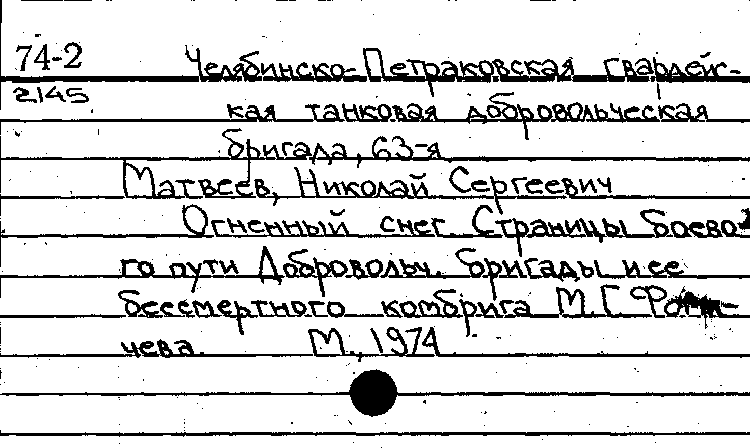 74-2
2145
Челябинско-Петраковская гвардейс-
кая танковая добровольческая
бригада, 63-я
Матвеев, Николай Сергеевич
Огненный снег. Страницы боево-
го пути Добровольч. бригады и ее
бессмертного комбрига М.Г. Фоми-
чева. М., 1974